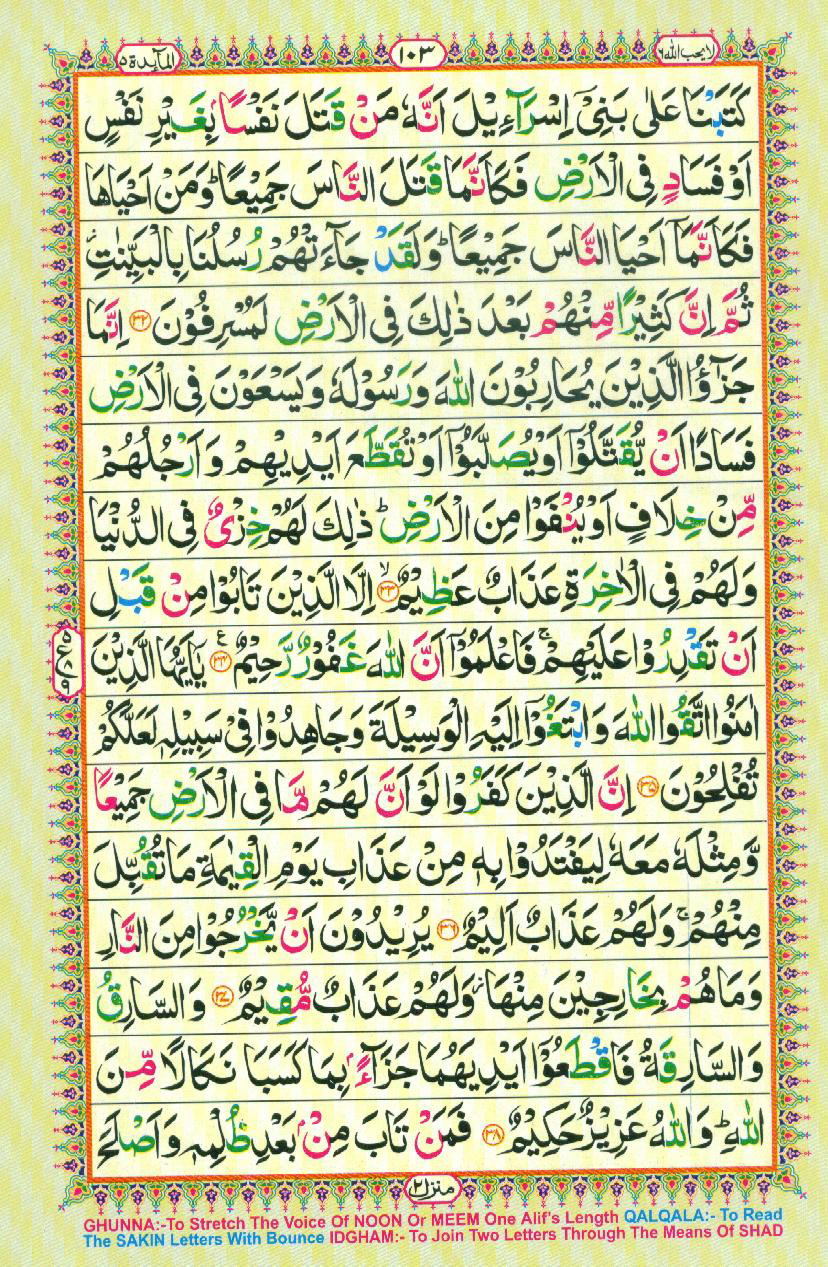 المآئدة ۵
۱۰۳
لا یحب الله ۶
كَتَبْنَا عَلٰى بَنِیْۤ اِسْرَآءِیْلَ اَنَّهٗ مَنْ قَتَلَ نَفْسًۢا بِغَیْرِ نَفْسٍ
اَوْ فَسَادٍ فِی الْاَرْضِ فَكَاَنَّمَا قَتَلَ النَّاسَ جَمِیْعًا ؕ وَمَنْ اَحْیَاهَا
فَكَاَنَّمَاۤ اَحْیَا النَّاسَ جَمِیْعًا ؕ وَلَقَدْ جَآءَتْهُمْ رُسُلُنَا بِالْبَیِّنٰتِ ؗ
ثُمَّ اِنَّ كَثِیْرًا مِّنْهُمْ بَعْدَ ذٰلِكَ فِی الْاَرْضِ لَمُسْرِفُوْنَ ۳۲ اِنَّمَا
جَزٰٓؤُا الَّذِیْنَ یُحَارِبُوْنَ اللّٰهَ وَرَسُوْلَهٗ وَیَسْعَوْنَ فِی الْاَرْضِ
فَسَادًا اَنْ یُّقَتَّلُوْۤا اَوْ یُصَلَّبُوْۤا اَوْ تُقَطَّعَ اَیْدِیْهِمْ وَاَرْجُلُهُمْ
مِّنْ خِلَافٍ اَوْ یُنْفَوْا مِنَ الْاَرْضِ ؕ ذٰلِكَ لَهُمْ خِزْیٌ فِی الدُّنْیَا
وَلَهُمْ فِی الْاٰخِرَةِ عَذَابٌ عَظِیْمٌ ۳۳ۙ اِلَّا الَّذِیْنَ تَابُوْا مِنْ قَبْلِ
اَنْ تَقْدِرُوْا عَلَیْهِمْ ۚ فَاعْلَمُوْۤا اَنَّ اللّٰهَ غَفُوْرٌ رَّحِیْمٌ ۳۴ ع یٰۤاَیُّهَا الَّذِیْنَ
۵
ع
۸
۹
اٰمَنُوا اتَّقُوا اللّٰهَ وَابْتَغُوْۤا اِلَیْهِ الْوَسِیْلَةَ وَجَاهِدُوْا فِیْ سَبِیْلِهٖ لَعَلَّكُمْ
تُفْلِحُوْنَ ۳۵ اِنَّ الَّذِیْنَ كَفَرُوْا لَوْ اَنَّ لَهُمْ مَّا فِی الْاَرْضِ جَمِیْعًا
وَّمِثْلَهٗ مَعَهٗ لِیَفْتَدُوْا بِهٖ مِنْ عَذَابِ یَوْمِ الْقِیٰمَةِ مَا تُقُبِّلَ
مِنْهُمْ ۚ وَلَهُمْ عَذَابٌ اَلِیْمٌ ۳۶ یُرِیْدُوْنَ اَنْ یَّخْرُجُوْا مِنَ النَّارِ
وَمَا هُمْ بِخَارِجِیْنَ مِنْهَا ؗ وَلَهُمْ عَذَابٌ مُّقِیْمٌ ۳۷ وَالسَّارِقُ
وَالسَّارِقَةُ فَاقْطَعُوْۤا اَیْدِیَهُمَا جَزَآءًۢ بِمَا كَسَبَا نَكَالًا مِّنَ
اللّٰهِ ؕ وَاللّٰهُ عَزِیْزٌ حَكِیْمٌ ۳۸ فَمَنْ تَابَ مِنْۢ بَعْدِ ظُلْمِهٖ وَاَصْلَحَ
منزل ۲
GHUNNA:-To Stretch The Voice Of NOON Or MEEM One Alif's Length QALQALA:- To Read
The SAKIN Letters With Bounce IDGHAM:- To Join Two Letters Through The Means Of SHAD